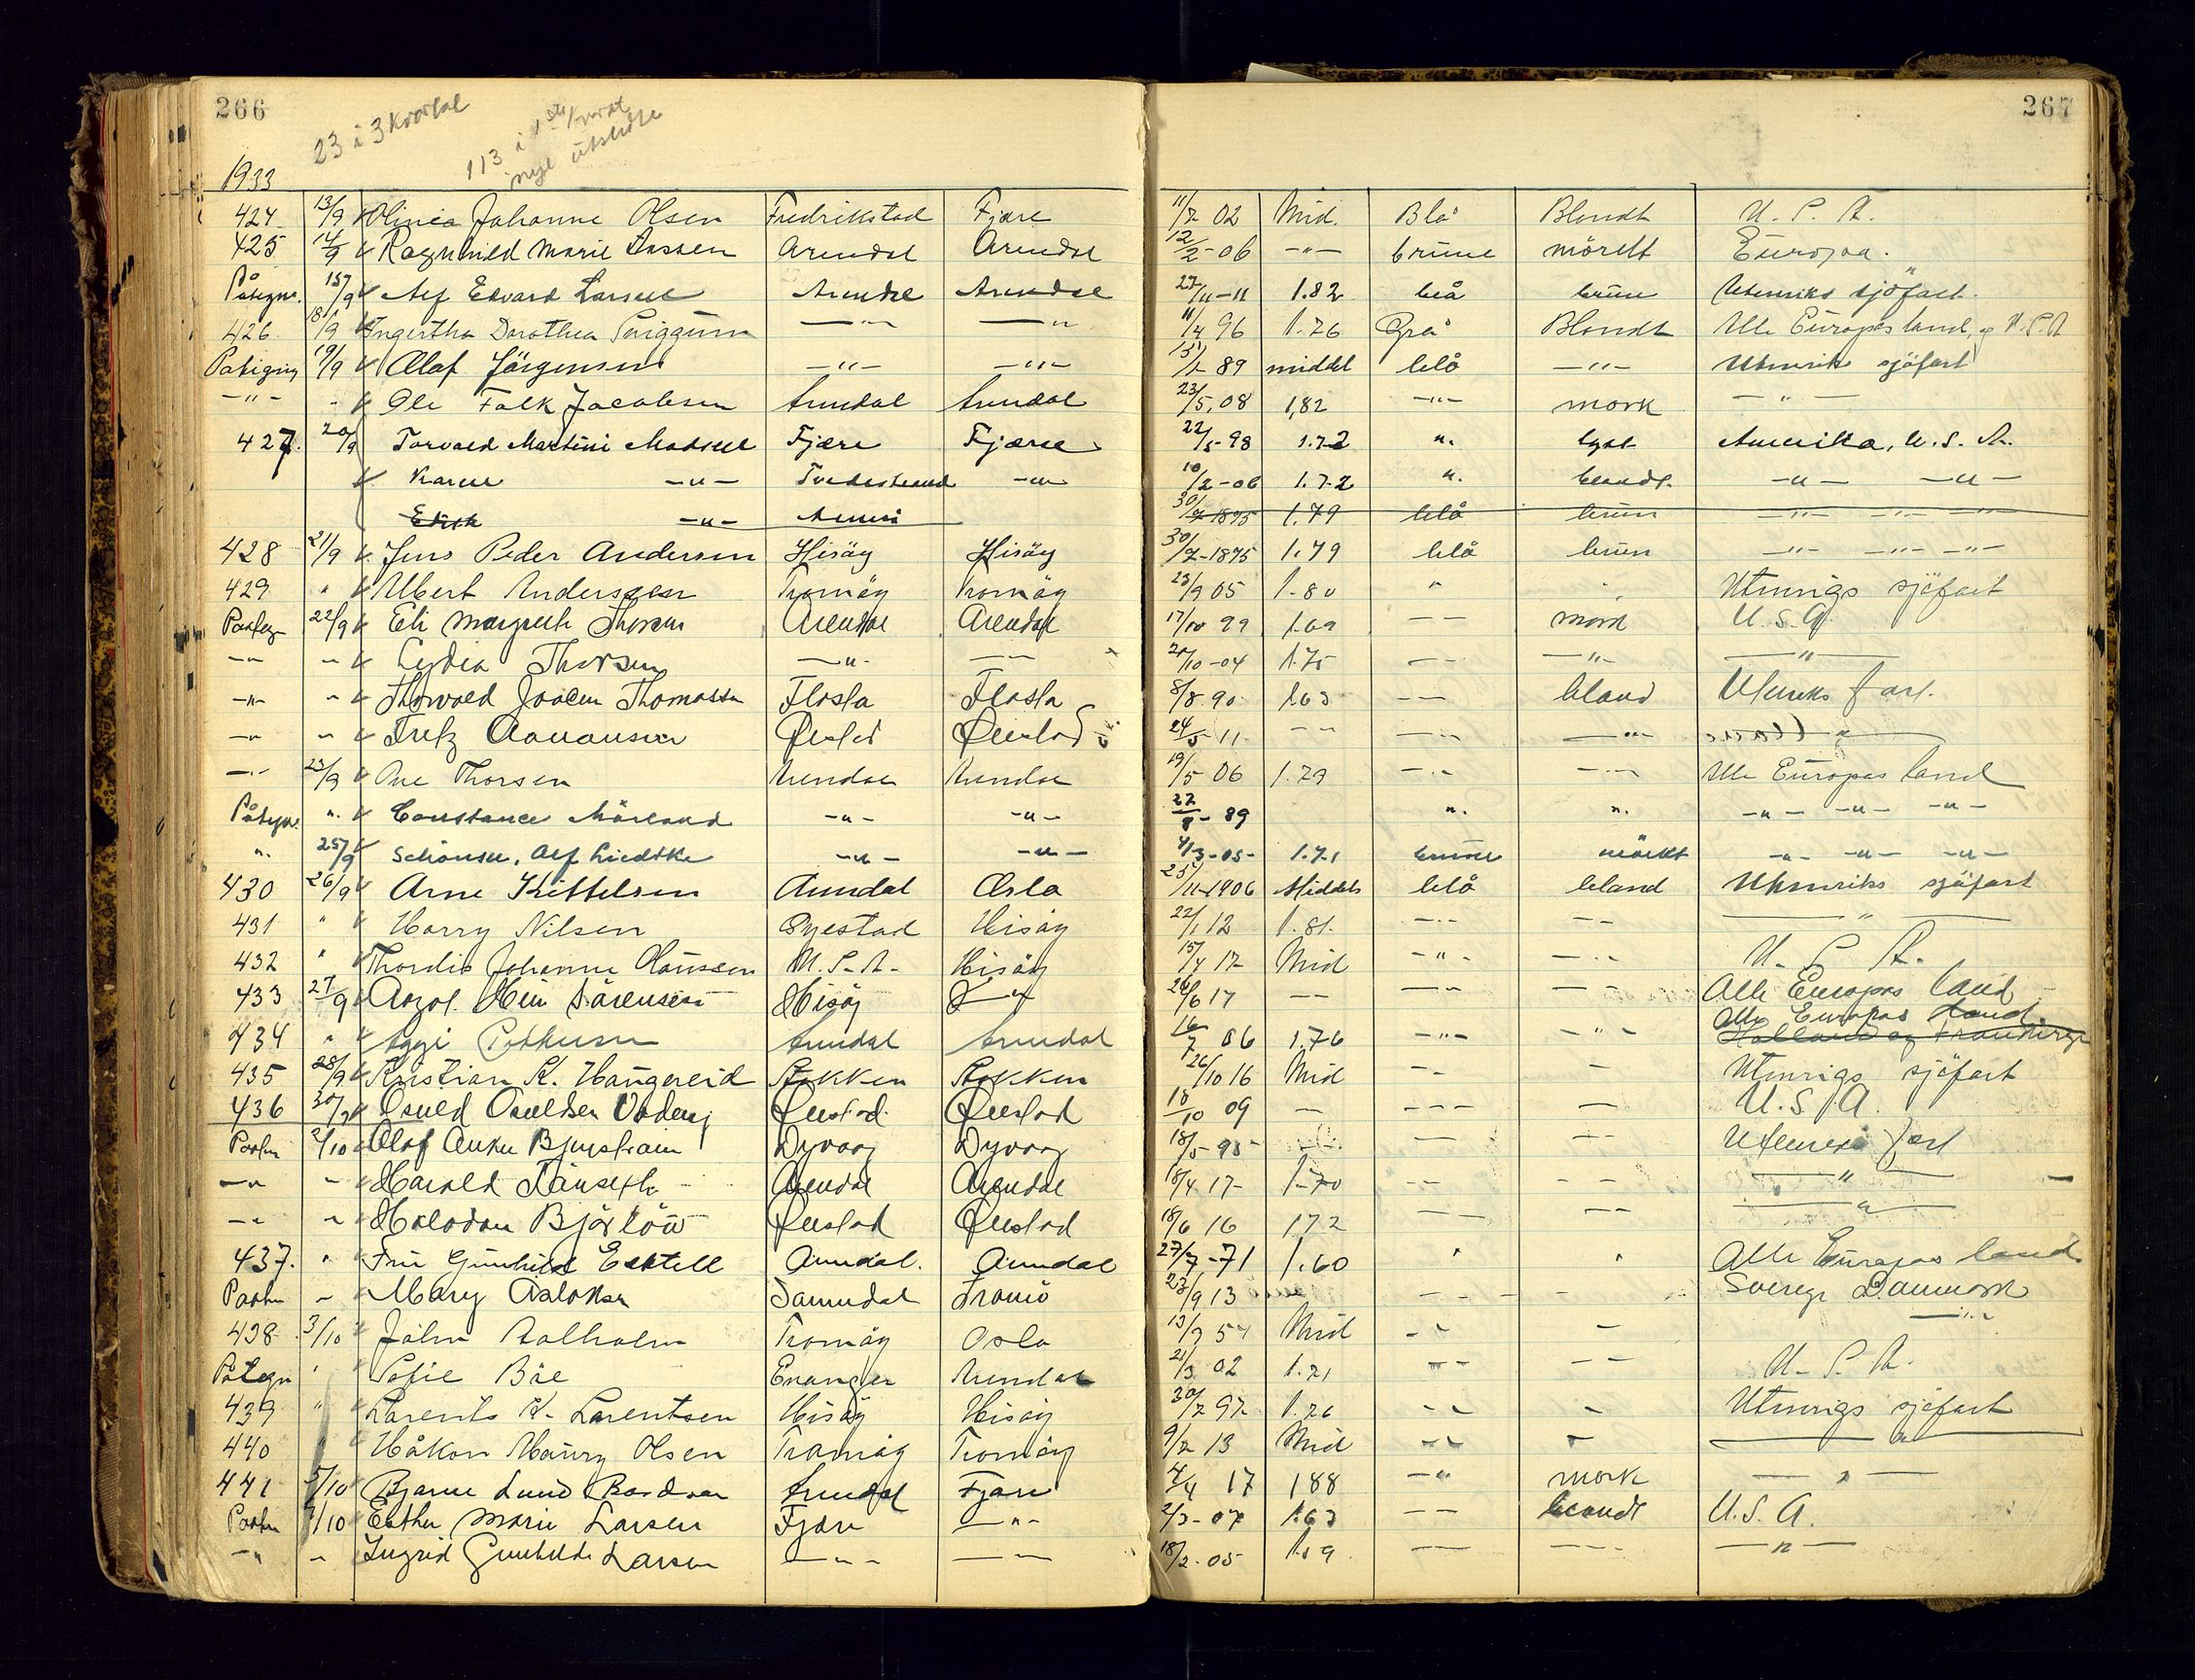 266
267
23 i 3 kvartal
113 i 1ste kvart
nye utstedte
1933
424 13/9 Olinea Johanne Olsen Fredrikstad Fjære 11/7 02 Mid. Blå Blondt U. S. A.
425 14/9 Ragnhild Marie Lassen Arendal Arendal 12/2-06 -"- brune mörkt Europa.
Påtegn. 15/9 Alf Edvard Larsen Arendal Arendal 27/11-11 1.82 blå brun Utenriks sjöfart.
426 18/9 Ingertha Dorothea -"- -"- 11/4 96 1.76 Grå Blondt Alle Europas land, og U.S.A
Påtegn 19/9 Olaf Jörgensen -"- -"- 15/1 89 middel blå -"- Utenriks sjöfart
-"- - Ole Falk Jacobsen Arendal Arendal 23/5.08 1,82 -"- mörk -"-
427. 20/9 Torvald Martini Madsen Fjære Fjære 22/5-98 1.72 ". lyst Amerika, U.S.A.
Karen -"- Tvedestrand -"- 10/2-06 1.72 ". blondt. -"- -"-
-"- 30/7-1875 1.79 blå brun -"- -"- -"-
428 21/9 Jens Peder Andersen Hisöy Hisöy 30/7-1875 1.79 blå brun -"- -"- -"-
429 " Albert Andersen Tromöy Tromöy 23/9 05 1.80 " " Utenrigs sjöfart
22/9 Eli Margreth Thorsen Arendal Arendal 17/10 99 1.69 -- mörk U.S.A.
-"- " Lydia Thorsen -"- -"- 20/10-04 1.75 -- -"- -"-
-"- " Thorvald Joakim Thomassen Flosta Flosta 8/8.90 1.63 -- blond Utenriks fart.
-"- " Fritz Öiestad Öiestad 24/5 11 -- -"- -"- "
-"- 23/9 Arendal Arendal 19/5 06 1.79 -"- -"- Alle Europas land
Påtegn. ". Constance Mörland -"- -"- 22/8-89 ". ". -"- -"- -"-
". 25/9 Schönsee, Alf Liedtke -"- -"- 4/3-05- 1.71 brune mörkt -"- -"- -"-
430 26/9 Arne Kittelsen Arendal Oslo 25/11-1906 Middels blå blond Utenriks sjöfart
431 " Harry Nilsen Öyestad Hisöy 22/1 12 1.81. -"- -- "
432 " Thordis Johanne Hanssen U.S.A. Hisöy 15/4 17 Mid -"- -"- U. S. A.
433 27/9 Sörensen Hisöy -"- 26/6 17 -- -"- -- Alle Europas land
434 " Aagi Pettersen Arendal Arendal 16/7 06 1,76 -"- -"- Alle Europas land
Holland og Frankrige
435 28/9 Kristian K. Haugereid Stokken Stokken 26/10 16 Mid -- - Utenrigs sjöfart
436 30/9 Osuld Osuldsen Öiestad Öiestad 18/10 09 - --- - U.S.A.
2/10 Olaf Anker Dyvaag Dyvaag 18/5-95 -- -- Utenriks fart
-"- " Harald Tänseth Arendal Arendal 18/4 17- 1.70 -- -- -"-
-"- " Halvdan Björlöw Öiestad Öiestad 18/6 16 172 -- -- -"-
437. " Fru Gunhild Arendal. Arendal 27/7-71 1.60 " " Alle Europas land
" Mary Aslaksen Tromö 23/9 13 -- -- Sverge Danmark
438 3/10 John Aalholm Tromöy Oslo 13/9 54 Mid -"- - -"-
Påtegn " Sofie Böe Evanger Arendal 21/3 02 1.71 -- -- U. S. A.
439 " Larents K. Larentsen Hisöy Hisöy 30/7 97 1.76 -"- - Utenrigs sjöfart
440 " Håkon Maury Olsen Tromöy Tromöy 9/2 13 Mid -"- - "
441 5/10 Bjarne Lund Arendal Fjære 4/4 17 188 -"- mörk -"-
7/10 Esther Marie Larsen Fjære -"- 2/3-07 1.63 -- blondt U.S.A.
-"- " Ingrid Gunhilde Larsen -"- -"- 18/2-05 1.59 -- --- -"-